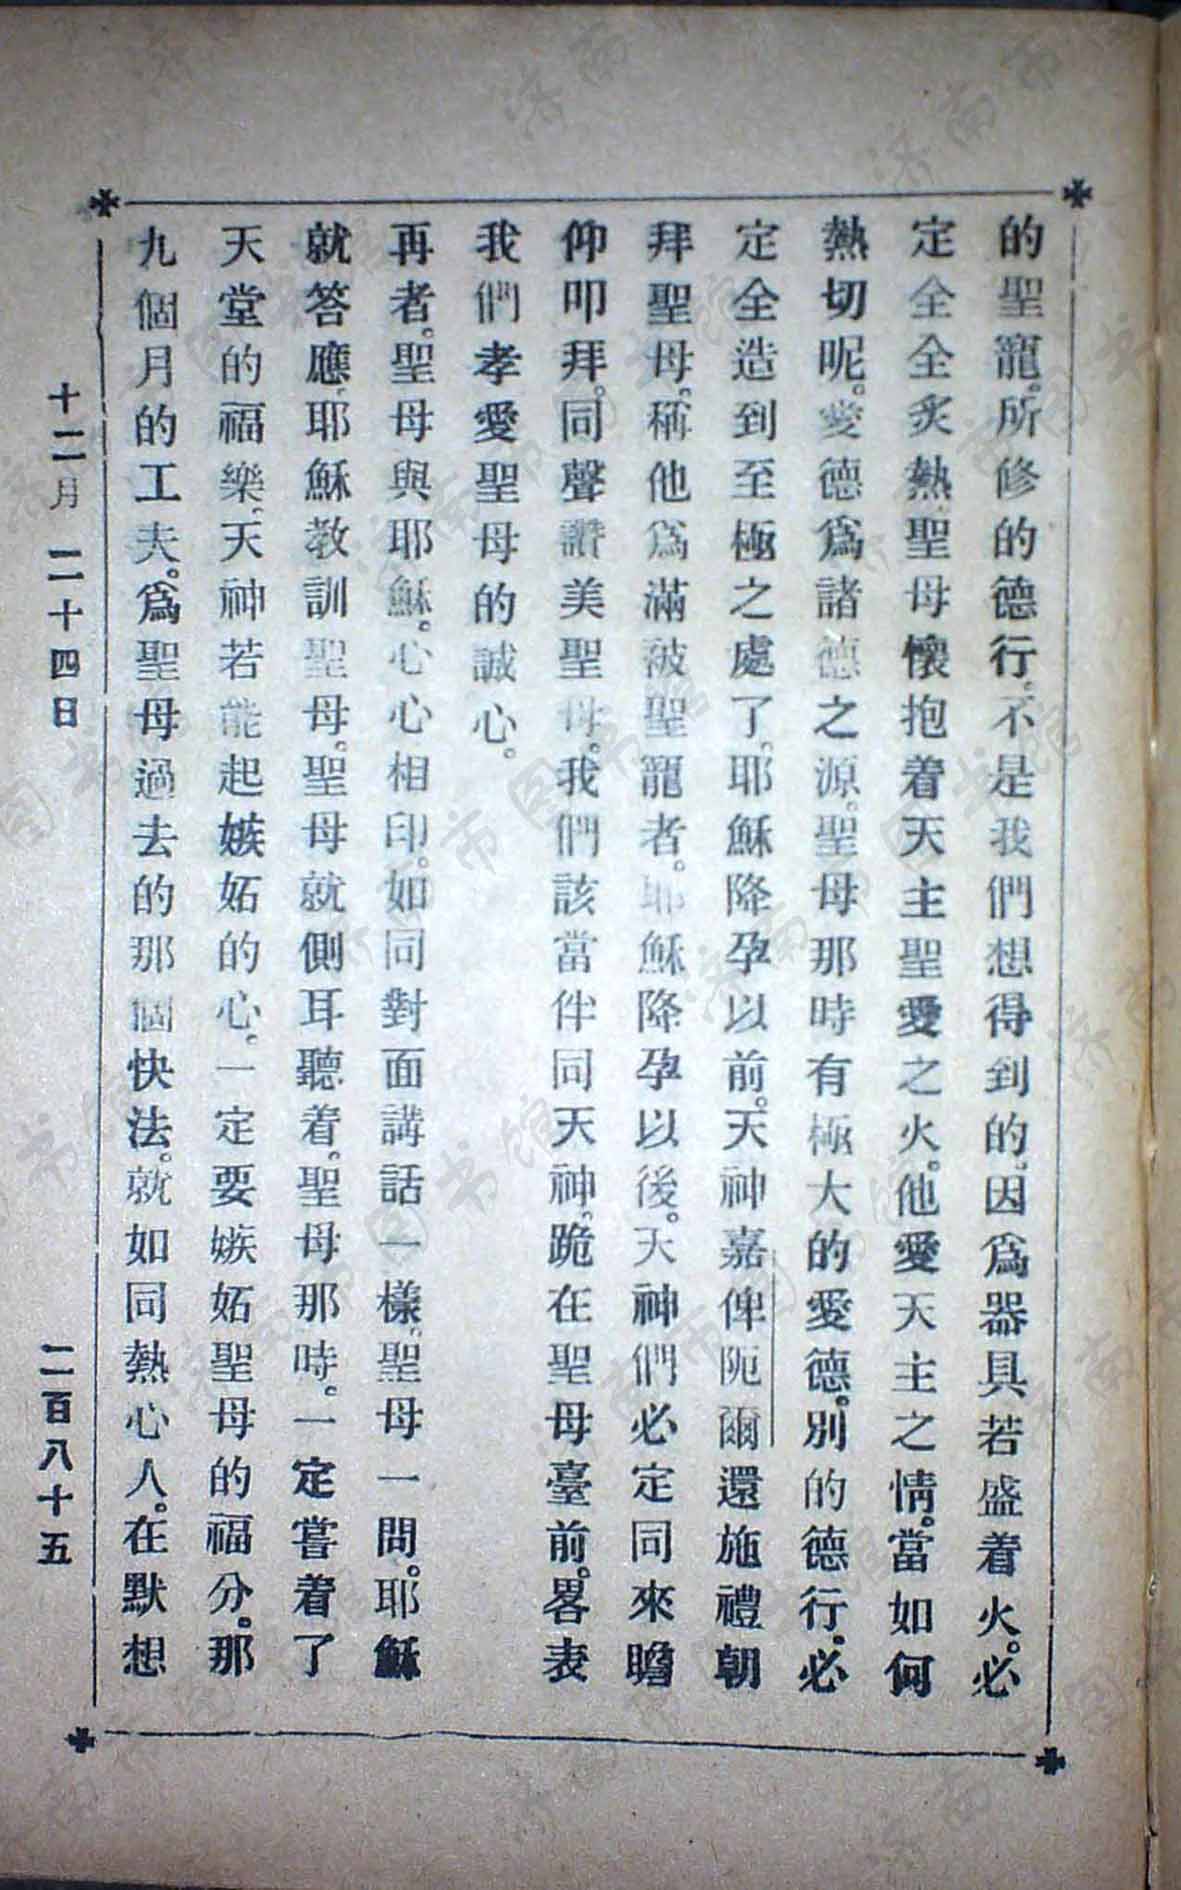 的聖寵。所修的德行。不是我們想得到的。因爲器具若盛着火。必
定全全炙熱。聖母懷抱着天主聖愛之火。他愛天主之情。當如何
熱切呢。愛德爲諸德之源。聖母那時有極大的愛德。別的德行。必
定全造到至極之處了。耶穌降孕以前。天神嘉俾阨爾還施禮朝
拜聖母。稱他爲滿被聖寵者。耶穌降孕以後。天神們必定同來瞻
仰叩拜。同聲讚美聖母。我們該當伴同天神。跪在聖母臺前。畧表
我們孝愛聖母的誠心。
再者。聖母與耶穌。心心相印。如同對面講話一樣。聖母一問。耶穌
就答應。耶穌教訓聖母。聖母就側耳聽着。聖母那時。一定嘗着了
天堂的福樂。天神若能起嫉妬的心。一定要嫉妬聖母的福分。那
九個月的工夫。爲聖母過去的那個快法。就如同熱心人。在默想
十二月 二十四日 二百八十五
济南市图书馆